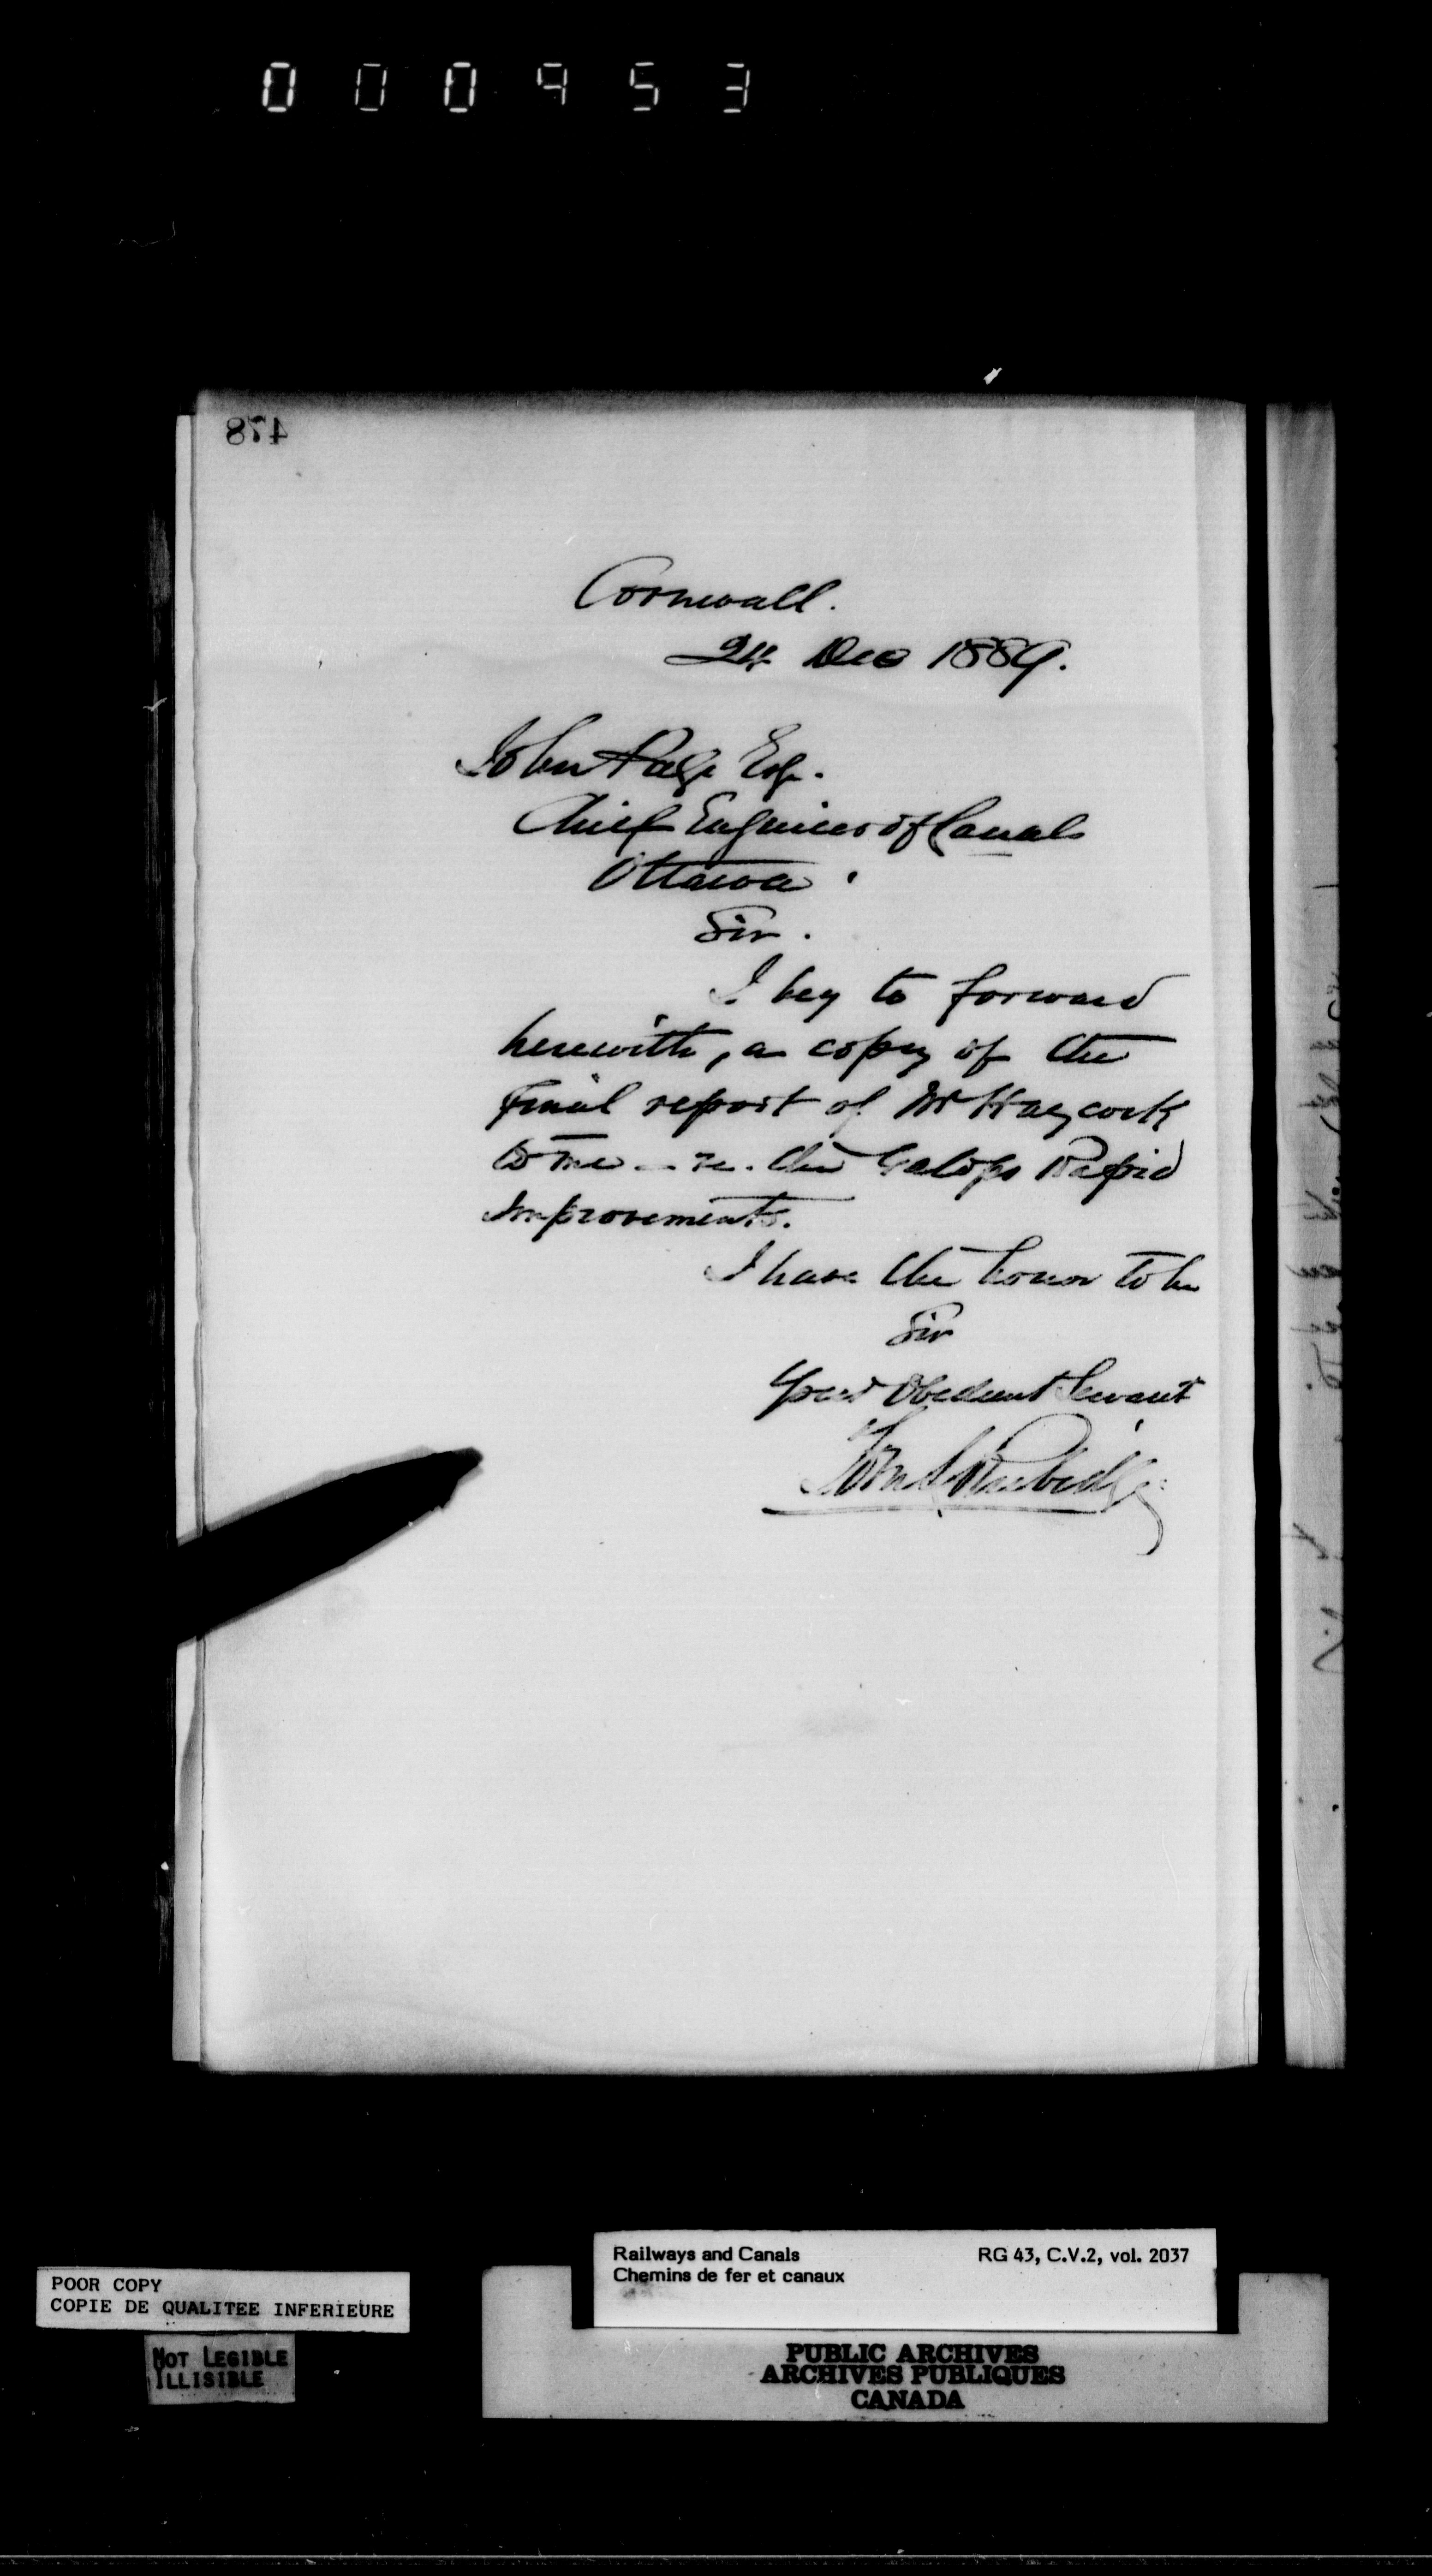 000953
478
Cornwall.
24 Dec 1889.
John Page Esq.
Chief Engineer of Canals
Ottawa.
Sir.
I beg to forward
herewith, a copy of the
Final report of Mr Haycock
to me - re. the Galops Rapid
Improvements.
I have the honor to be
Sir
Your Obedient Servant
Railways and Canals
Chemins de fer et canaux
RG 43, C.V.2, vol. 2037
POOR COPY
COPIE DE QUALITEE INFERIEURE
NOT LEGIBLE
ILLISIBLE
PUBLIC ARCHIVES
ARCHIVES PUBLIQUES
CANADA